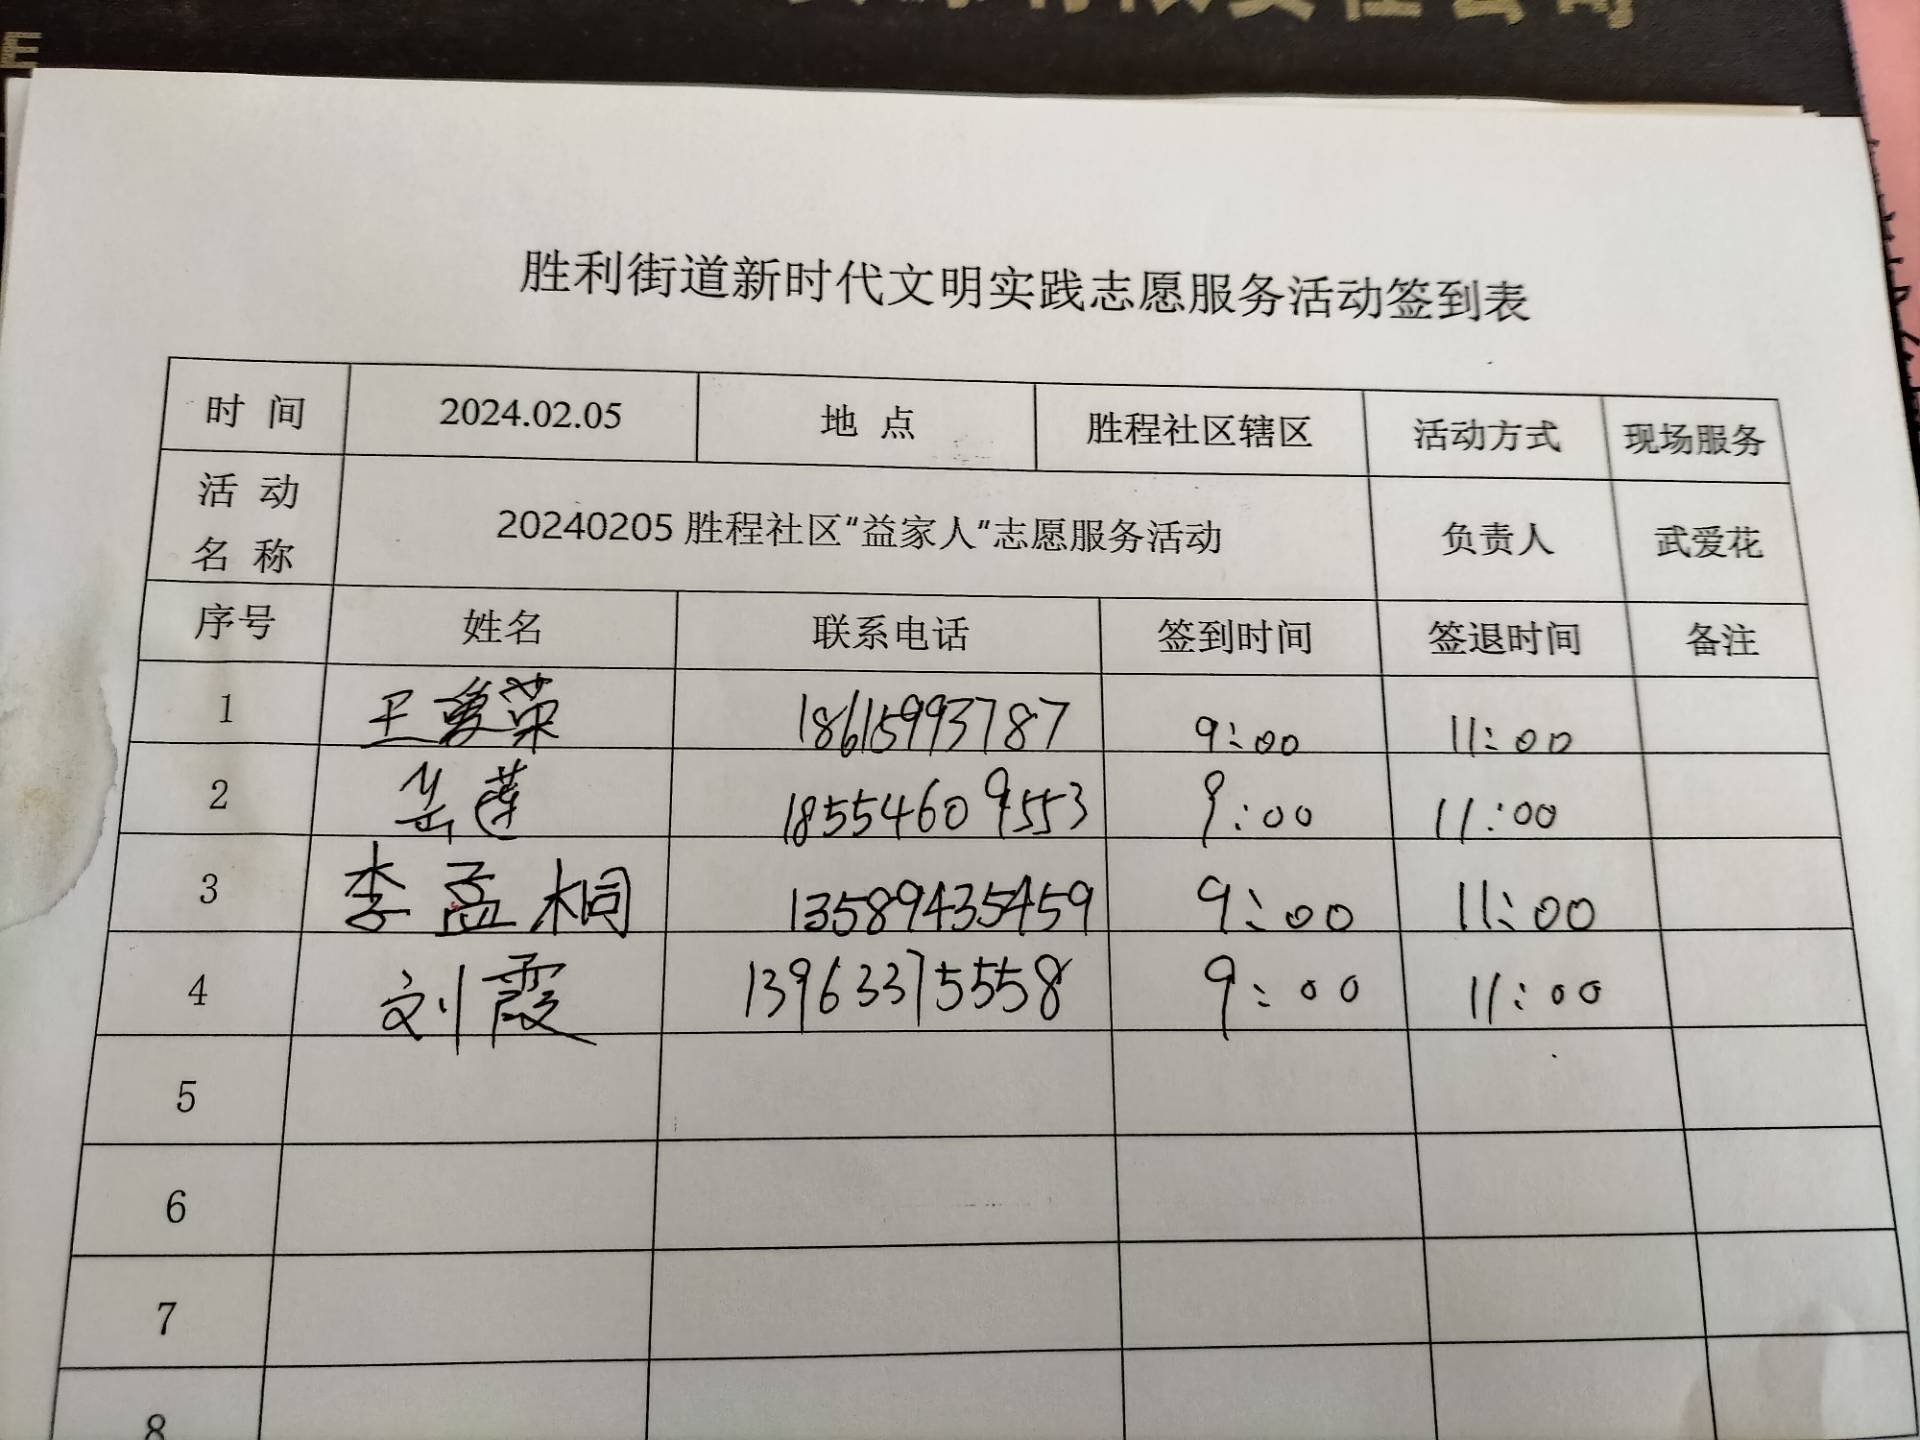 胜利街道新时代文明实践志愿服务活动签到表
时 间 2024.02.05 地 点 胜程社区辖区 活动方式 现场服务
活 动
名 称 20240205 胜程社区“益家人”志愿服务活动 负责人 武爱花
序号 姓名 联系电话 签到时间 签退时间 备注
1 王爱荣 18615993787 9:00 11:00
2 岳莲 18554609553 9:00 11:00
3 李孟桐 13589435459 9:00 11:00
4 刘霞 13963375558 9:00 11:00
5
6
7
8